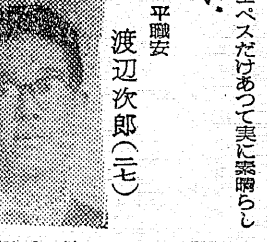 ペスだけあつて実に素晴らし
平職安
渡辺次郎(二七)